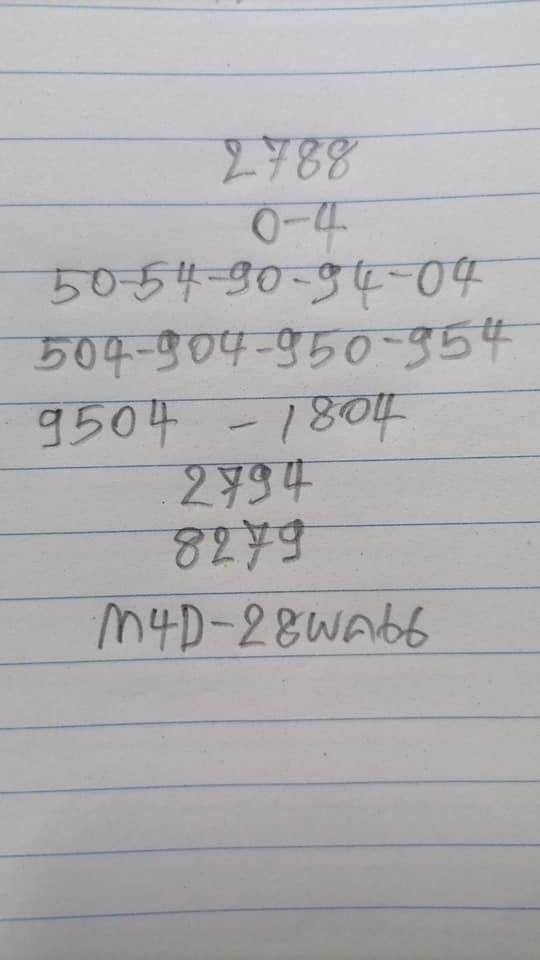 2788
0-4
50-54-90-94-04
504-904-950-954
9504 - 1804
2794
8279
M4D-28พค66